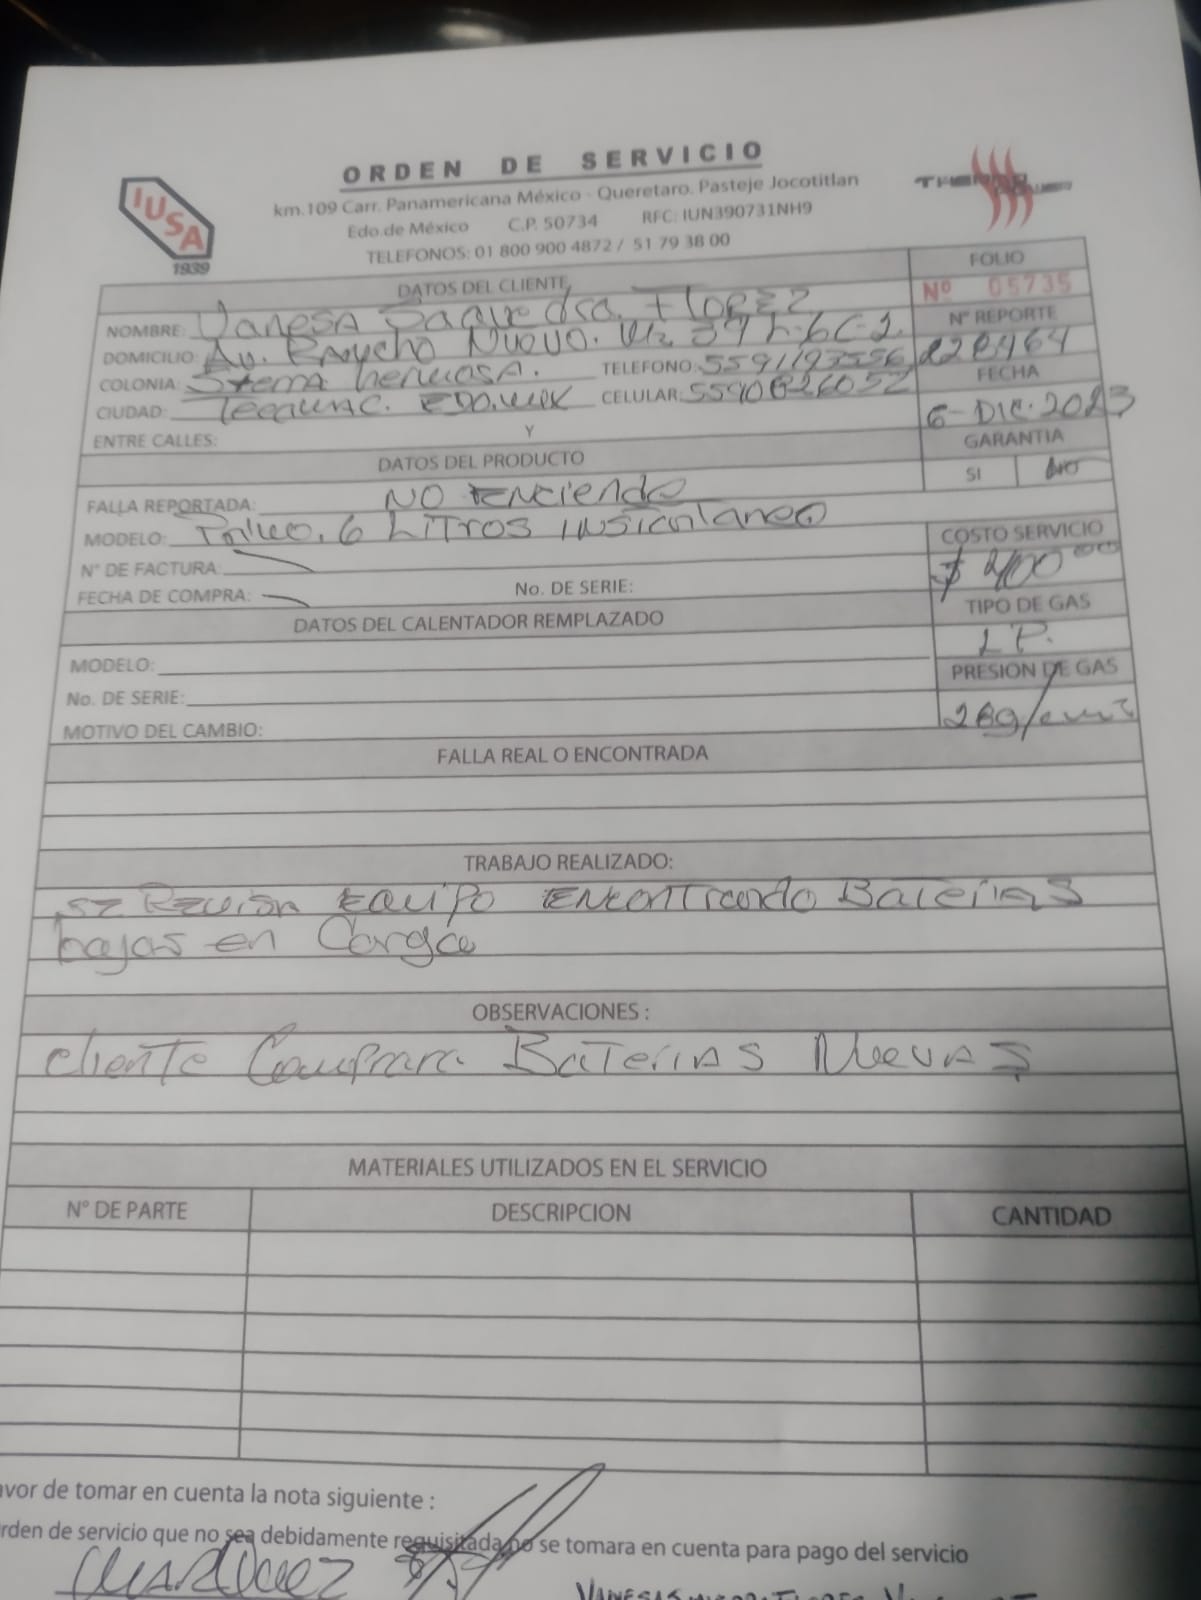 ORDEN DE SERVICIO
km.109 Carr. Panamericana México - Queretaro. Pasteje Jocotitlan
Edo.de México C.P. 50734 RFC: IUN390731NH9
TELEFONOS: 01 800 900 4872 / 51 79 38 00
IUSA
1939
THERMO
DATOS DEL CLIENTE
FOLIO
Nº 05735
NOMBRE: Vanesa Flores
Nº REPORTE
228464
DOMICILIO: Av. Rancho Nuevo. Mz 39 L-6C-2.
COLONIA: Sierra hermosa. TELEFONO: 5591193556
FECHA
6-DIC-2023
CIUDAD: Tecamac. EDO.MEX CELULAR: 5590626052
ENTRE CALLES: Y
GARANTIA
SI NO
DATOS DEL PRODUCTO
FALLA REPORTADA: NO ENCIENDE
MODELO: 6 LITROS
COSTO SERVICIO
$ 400.00
Nº DE FACTURA:
FECHA DE COMPRA: No. DE SERIE:
TIPO DE GAS
LP.
DATOS DEL CALENTADOR REMPLAZADO
MODELO:
PRESION DE GAS
No. DE SERIE:
MOTIVO DEL CAMBIO:
FALLA REAL O ENCONTRADA
TRABAJO REALIZADO:
SE REVISA EQUIPO ENCONTRANDO BATERIAS
bajas en Carga
OBSERVACIONES :
cliente Comprara BATERIAS NUEVAS
MATERIALES UTILIZADOS EN EL SERVICIO
N° DE PARTE DESCRIPCION CANTIDAD
avor de tomar en cuenta la nota siguiente :
rden de servicio que no sea debidamente requisitada no se tomara en cuenta para pago del servicio